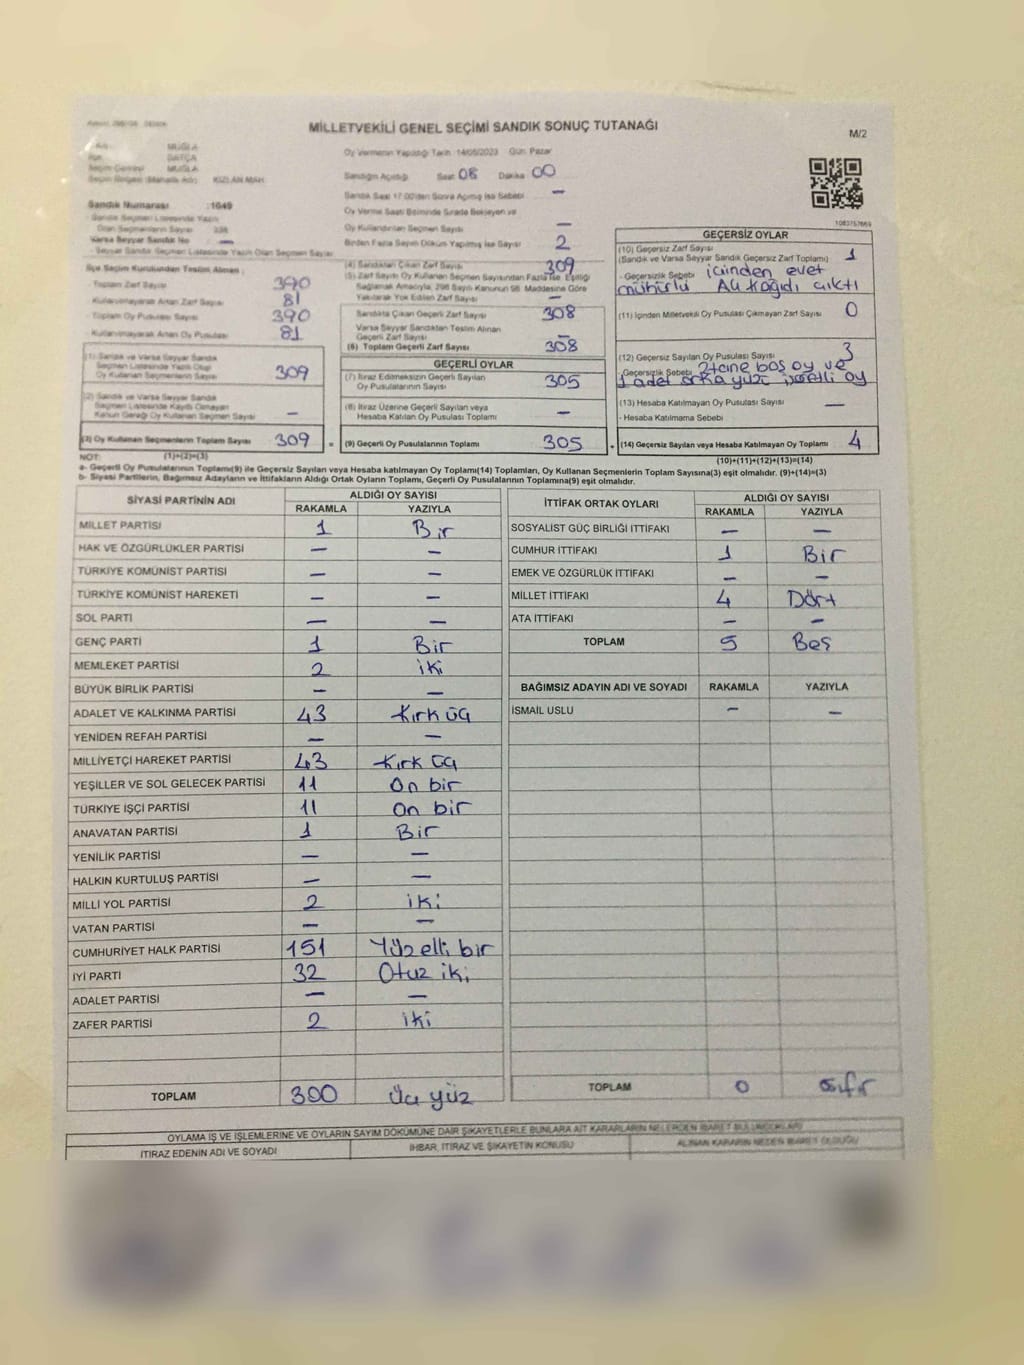 MİLLETVEKİLİ GENEL SEÇİMİ SANDIK SONUÇ TUTANAĞI
M/2
İli : MUĞLA
İlçe : DATÇA
Seçim Çevresi : MUĞLA
KIZLAN MAH.
Sandık Numarası : 1049
Oy Vermenin Yapıldığı Tarih :14/05/2023 Gün: Pazar
Sandığın Açıldığı Saat 08 Dakika 00
Sandık Saat 17:00'den Sonra Açılmış İse Sebebi —
Oy Verme Saati Bitiminde Sırada Bekleyen ve
Oy Kullandırılan Seçmen Sayısı —
Birden Fazla Sayım Döküm Yapılmış İse Sayısı 2
1083757665
- Sandık Seçmen Listesinde Yazılı
Olan Seçmenlerin Sayısı 338
Varsa Seyyar Sandık No —
- Seyyar Sandık Seçmen Listesinde Yazılı Olan Seçmen Sayısı
İlçe Seçim Kurulundan Teslim Alınan ;
- Toplam Zarf Sayısı 390
- Kullanılmayarak Artan Zarf Sayısı 81
- Toplam Oy Pusulası Sayısı 390
- Kullanılmayarak Artan Oy Pusulası 81
(1) Sandık ve Varsa Seyyar Sandık
Seçmen Listesinde Yazılı Olup
Oy Kullanan Seçmenlerin Sayısı 309
(2) Sandık ve Varsa Seyyar Sandık
Seçmen Listesinde Kayıtlı Olmayan
Kanun Gereği Oy Kullanan Seçmen Sayısı —
(3) Oy Kullanan Seçmenlerin Toplam Sayısı 309
(1)+(2)=(3)
(4) Sandıktan Çıkan Zarf Sayısı 309
(5) Zarf Sayısı Oy Kullanan Seçmen Sayısından Fazla İse, Eşitliği
Sağlamak Amacıyla, 298 Sayılı Kanunun 98. Maddesine Göre
Yakılarak Yok Edilen Zarf Sayısı —
Sandıkta Çıkan Geçerli Zarf Sayısı 308
Varsa Seyyar Sandıktan Teslim Alınan
Geçerli Zarf Sayısı —
(6) Toplam Geçerli Zarf Sayısı 308
GEÇERLİ OYLAR
(7) İtiraz Edilmeksizin Geçerli Sayılan
Oy Pusulalarının Sayısı 305
(8) İtiraz Üzerine Geçerli Sayılan veya
Hesaba Katılan Oy Pusulası Toplamı —
= (9) Geçerli Oy Pusulalarının Toplamı 305
GEÇERSİZ OYLAR
(10) Geçersiz Zarf Sayısı 1
(Sandık ve Varsa Seyyar Sandık Geçersiz Zarf Toplamı)
- Geçersizlik Sebebi içinden evet
mühürlü Alt kağıdı çıktı
(11) İçinden Milletvekili Oy Pusulası Çıkmayan Zarf Sayısı 0
(12) Geçersiz Sayılan Oy Pusulası Sayısı 3
-Geçersizlik Sebebi 2 tane boş oy ve
1 adet arka yüzü işaretli oy
(13) Hesaba Katılmayan Oy Pusulası Sayısı —
- Hesaba Katılmama Sebebi
+ (14) Geçersiz Sayılan veya Hesaba Katılmayan Oy Toplamı 4
(10)+(11)+(12)+(13)=(14)
NOT:
a- Geçerli Oy Pusulalarının Toplamı(9) ile Geçersiz Sayılan veya Hesaba katılmayan Oy Toplamı(14) Toplamları, Oy Kullanan Seçmenlerin Toplam Sayısına(3) eşit olmalıdır. (9)+(14)=(3)
b- Siyasi Partilerin, Bağımsız Adayların ve İttifakların Aldığı Ortak Oyların Toplamı, Geçerli Oy Pusulalarının Toplamına(9) eşit olmalıdır.
SİYASİ PARTİNİN ADI ALDIĞI OY SAYISI
RAKAMLA YAZIYLA
MİLLET PARTİSİ 1 Bir
HAK VE ÖZGÜRLÜKLER PARTİSİ — —
TÜRKİYE KOMÜNİST PARTİSİ — —
TÜRKİYE KOMÜNİST HAREKETİ — —
SOL PARTİ — —
GENÇ PARTİ 1 Bir
MEMLEKET PARTİSİ 2 iki
BÜYÜK BİRLİK PARTİSİ — —
ADALET VE KALKINMA PARTİSİ 43 Kırk üç
YENİDEN REFAH PARTİSİ — —
MİLLİYETÇİ HAREKET PARTİSİ 43 Kırk üç
YEŞİLLER VE SOL GELECEK PARTİSİ 11 On bir
TÜRKİYE İŞÇİ PARTİSİ 11 On bir
ANAVATAN PARTİSİ 1 Bir
YENİLİK PARTİSİ — —
HALKIN KURTULUŞ PARTİSİ — —
MİLLİ YOL PARTİSİ 2 iki
VATAN PARTİSİ — —
CUMHURİYET HALK PARTİSİ 151 Yüz elli bir
İYİ PARTİ 32 Otuz iki
ADALET PARTİSİ — —
ZAFER PARTİSİ 2 iki
TOPLAM 300 Üç yüz
İTTİFAK ORTAK OYLARI ALDIĞI OY SAYISI
RAKAMLA YAZIYLA
SOSYALİST GÜÇ BİRLİĞİ İTTİFAKI — —
CUMHUR İTTİFAKI 1 Bir
EMEK VE ÖZGÜRLÜK İTTİFAKI — —
MİLLET İTTİFAKI 4 Dört
ATA İTTİFAKI — —
TOPLAM 5 Beş
BAĞIMSIZ ADAYIN ADI VE SOYADI RAKAMLA YAZIYLA
İSMAİL USLU — —
TOPLAM 0 sıfır
OYLAMA İŞ VE İŞLEMLERİNE VE OYLARIN SAYIM DÖKÜMÜNE DAİR ŞİKAYETLERLE BUNLARA AİT KARARLARIN NELERDEN İBARET BULUNDUKLARI
İTİRAZ EDENİN ADI VE SOYADI İHBAR, İTİRAZ VE ŞİKAYETİN KONUSU ALINAN KARARIN NEDEN İBARET OLDUĞU